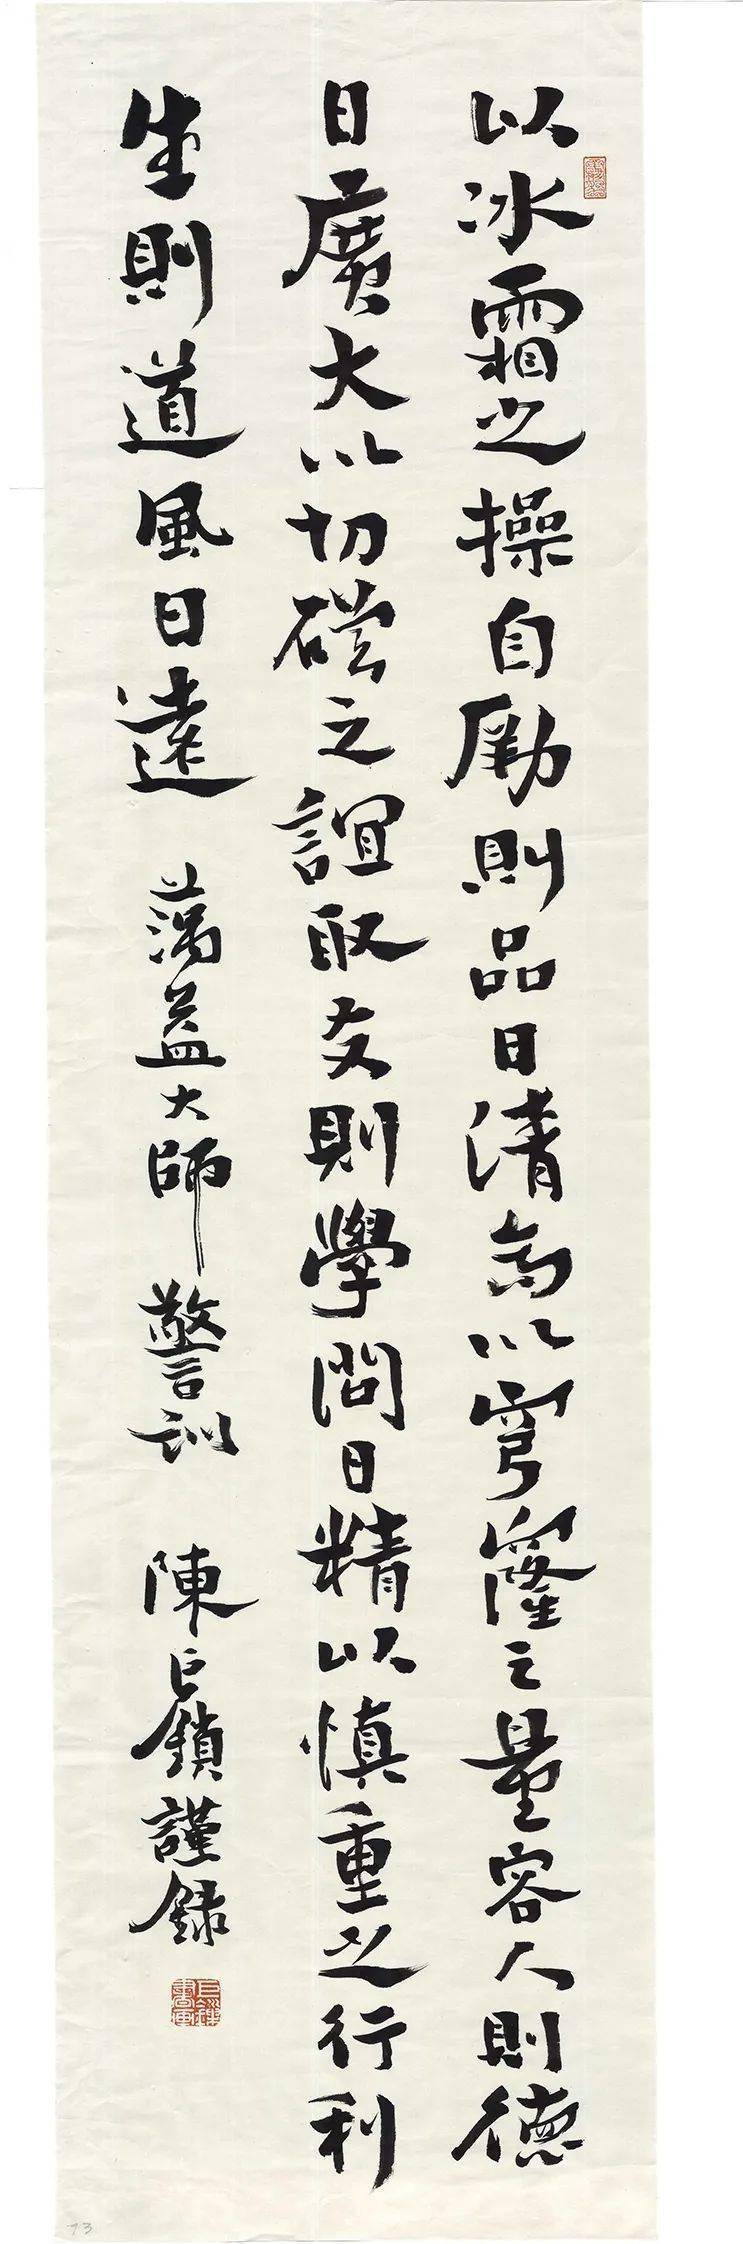 以冰霜之操自勵則品日清高以穹窿之量容人則德
日廣大以切磋之誼取友則學問日精以慎重之行利
生則道風日遠 蕅益大師警訓 陳巨鎖謹録
73